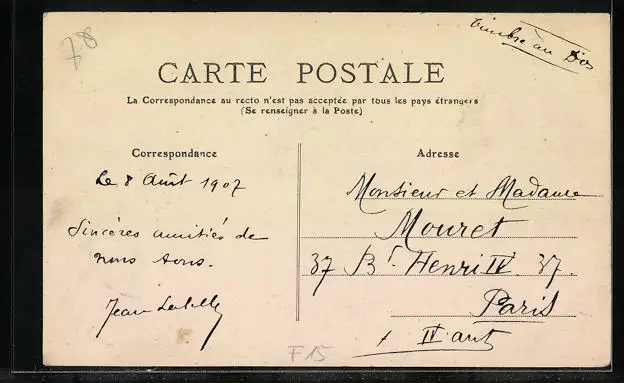 78
timbre au Dos
CARTE POSTALE
La Correspondance au recto n'est pas acceptée par tous les pays étrangers
(Se renseigner à la Poste)
Correspondance
Le 8 Août 1907
Sincères amitiés de
nous tous.
Jean
Adresse
Monsieur et Madame
Mouret
37 Bd Henri IV 37.
Paris
IV arrt
F15